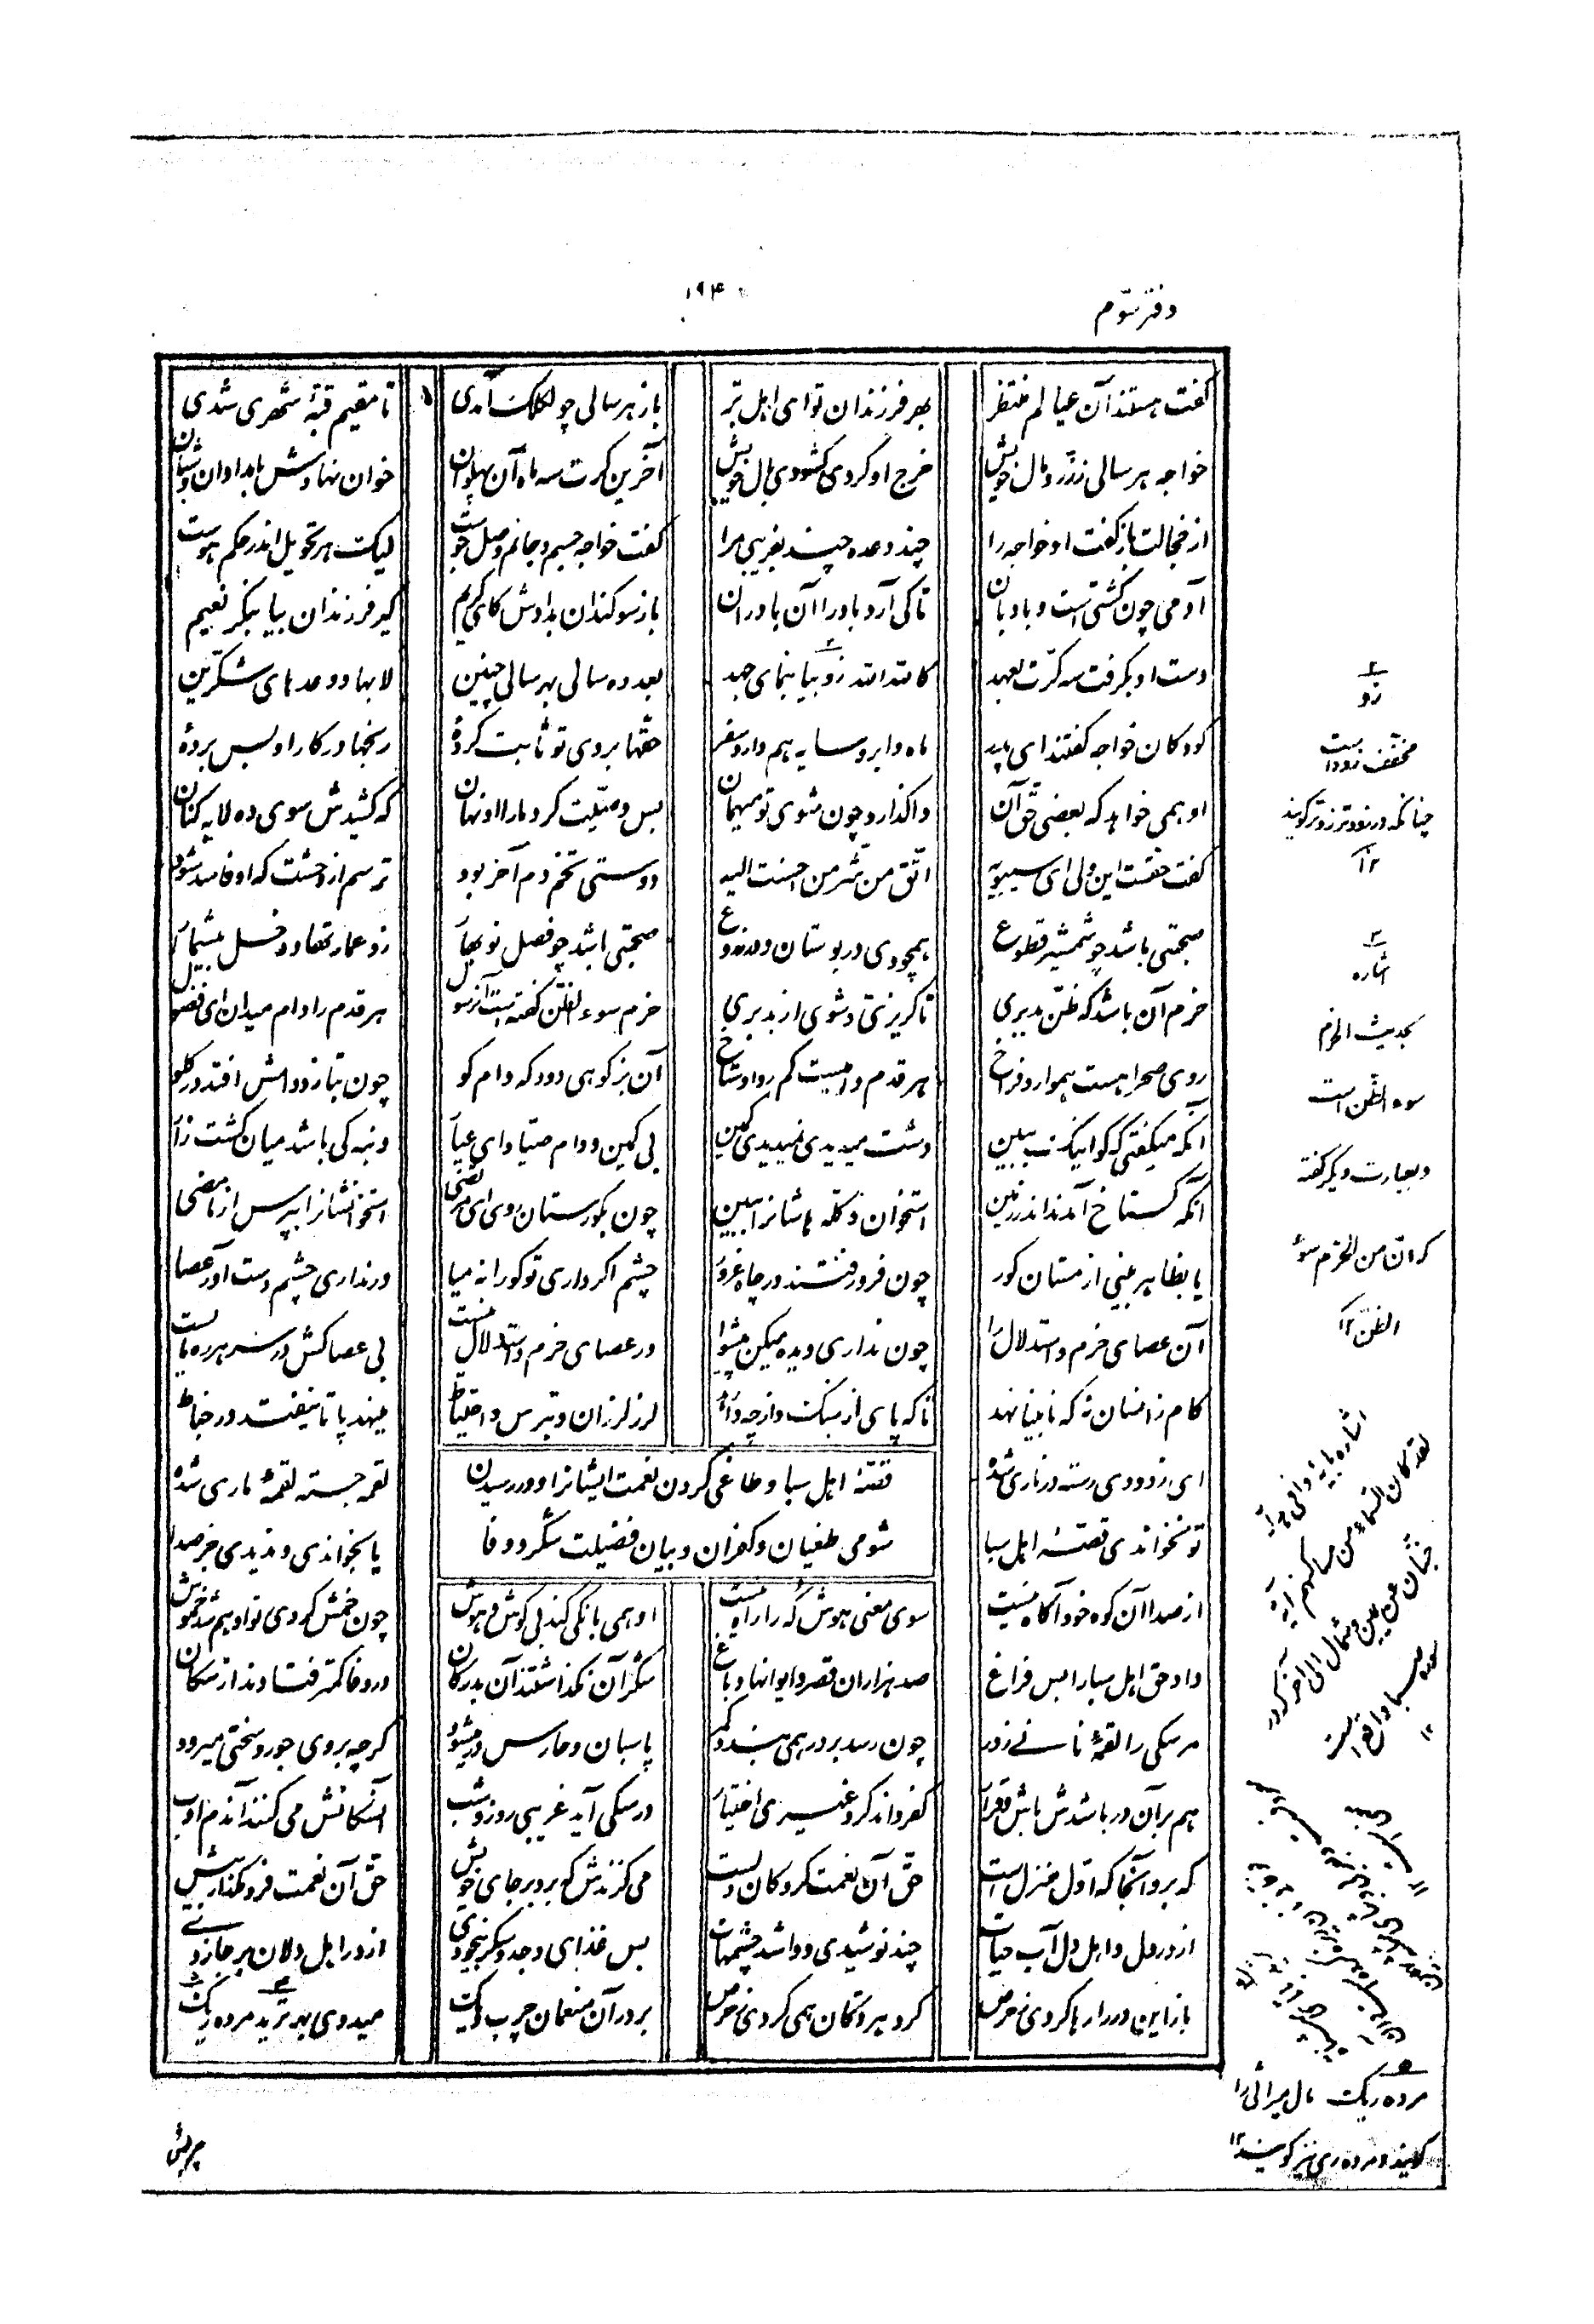 دفتر سوم
۱۹۴
گفت هستند آن عیالم منتظر بهر فرزندان تو ای اهل بر باز هر سالی چو لکلک آمدی تا مقیم قبهٔ شهری شدی
خواجه هر سالی ز زر و مال خویش خرج او کردی گشودی بال خویش آخرین کرت سه ماه آن پهلوان خوان نهادش بامدادان و شبان
از خجالت باز گفت او خواجه را چند وعده چند بفریبی مرا گفت خواجه جسم و جانم وصل جوست لیک هر تحویل اندر حکم هوست
آدمی چون کشتی است و بادبان تا کی آرد باد را آن بادران باز سوگندان بدادش کای کریم گیر فرزندان بیا بنگر نعیم
دست او بگرفت سه کرت بعهد کالله الله زو بیا بنمای جهد بعد ده سالی بهر سالی چنین لابها و وعدهای شکرین
کودکان خواجه گفتند ای پدر ماه و ابر و سایه هم دارد سفر حقها بر وی تو ثابت کردهٔ رنجها در کار او بس بردهٔ
او همی خواهد که بعضی حق آن واگذارد چون شوی تو میهمان بس وصیت کرد ما را او نهان که کشیدش سوی ده لابه کنان
گفت حقست این ولی ای سیبویه اتق من شر من احسنت الیه دوستی تخم دم آخر بود ترسم از وحشت که او فاسد شود
صحبتی باشد چو شمشیر قطوع همچو دی در بوستان و در زروع صحبتی باشد چو فصل نوبهار زو عمارتها و دخل بیشمار
حزم آن باشد که ظن بد بری تا گریزی و شوی از بد بری حزم سوء الظن گفته است آن رسول هر قدم را دام میدان ای فضول
روی صحرا هست هموار و فراخ هر قدم دامیست کم رو اوستاخ آن بز کوهی دود که دام کو چون بتازد دامش افتد در گلو
آنکه میگفتی که کو اینک ببین دشت میدیدی نمیدیدی کمین بی کمین و دام صیاد ای عیار دنبه کی باشد میان کشت زار
آنکه گستاخ آمدند اندر زمین استخوان و کله هاشانرا ببین چون بگورستان روی ای مرتضی استخوانشانرا بپرس از ما مضی
تا بظاهر بینی از مستان کور چون فرو رفتند در چاه غرور چشم اگر داری تو کورانه میا ور نداری چشم دست آور عصا
آن عصای حزم و استدلال را چون نداری دیده میکن پیشوا ور عصای حزم و استدلال نیست بی عصاکش در سر هر ره مایست
گام زانسان نه که نابینا نهد تا که پای از سنگ و از چه وارهد لرز لرزان و بترس و احتیاط مینهد پا تا نیفتد در خباط
ای ز دودی رسته در ناری شده لقمه جسته لقمهٔ ماری شده
قصهٔ اهل سبا و طاغی کردن نعمت ایشانرا و در رسیدن
شومی طغیان و کفران و بیان فضیلت شکر و وفا
تو نخواندی قصهٔ اهل سبا یا بخواندی و ندیدی جز صدا
از صدا آن کوه خود آگاه نیست سوی معنی هوش که را راه نیست او همی بانگی کند بی گوش و هوش چون خمش کردی تو او هم شد خموش
داد حق اهل سبا را بس فراغ صد هزاران قصر و ایوانها و باغ شکر آن نگذاشتند آن بدرگان در وفا کمتر فتادند از سگان
مر سگی را لقمهٔ نانے ز در چون رسد بر در همی بندد کمر پاسبان و حارس در میشود گرچه بر وی جور و سختی میرود
هم بر آن در باشدش باش و قرار کفر داند کرد غیری اختیار ور سگی آید غریبی روز و شب آن سگانش می کنند آن دم ادب
که برو آنجا که اول منزل است حق آن نعمت گروگان دل است می گزندش که برو بر جای خویش حق آن نعمت فرو مگذار بیش
از در دل و اهل دل آب حیات چند نوشیدی و وا شد چشمهات بس غذای وجد و سکر و بیخودی از در اهل دلان بر جان زدی
باز این در را رها کردی ز حرص گرد هر دکان همی گردی ز حرص بر در آن منعمان چرب دیگ میدوی بهر ثرید مرده ریگ
۲
زو
مخفف زود است
چنانکه در زودتر زوتر گویند
۱۲
۳
اشاره
بحدیث الحزم
سوء الظن است
و بعبارت دیگر گفته
که ان من الحزم سوء
الظن ۱۲
اشاره بآیهٔ وافی هدایه
لقد کان لسبا فی مساکنهم آیة
جنتان عن یمین و شمال الی آخر که در
سوره سبا واقع است
۱۲
مرده ریگ مال میراثی را
گویند و مرده ری نیز گویند ۱۲